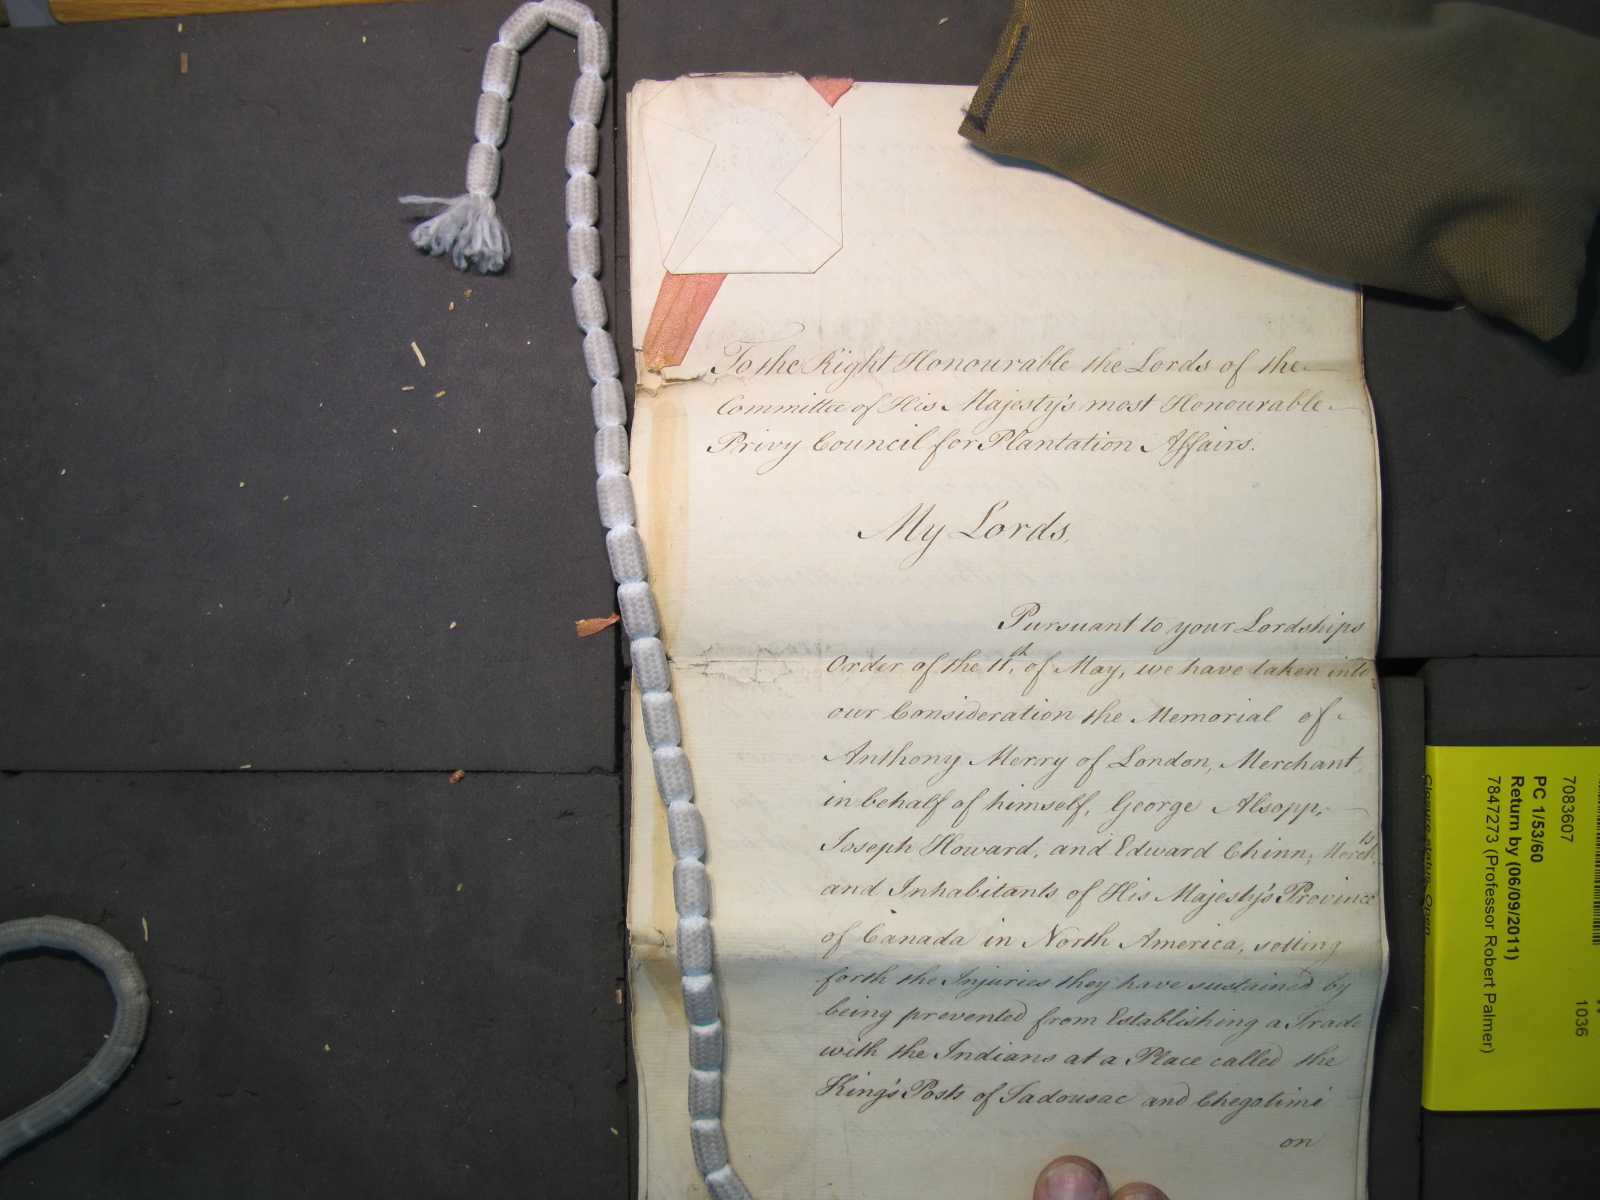 To the Right Honourable the Lords of the
Committee of His Majesty's most Honourable
Privy Council for Plantation Affairs.
My Lords,
Pursuant to your Lordships
Order of the 11th. of May, we have taken into
our Consideration the Memorial of
Anthony Merry of London, Merchant
in behalf of himself, George Alsopp,
Joseph Howard, and Edward Chinn, Merchts.
and Inhabitants of His Majesty's Province
of Canada in North America, setting
forth the Injuries they have sustained by
being prevented from Establishing a Trade
with the Indians at a Place called the
King's Posts of Tadousac and Chegotimi
on
7083607
1036
PC 1/53/60
Return by (06/09/2011)
7847273 (Professor Robert Palmer)
Closure status: Open